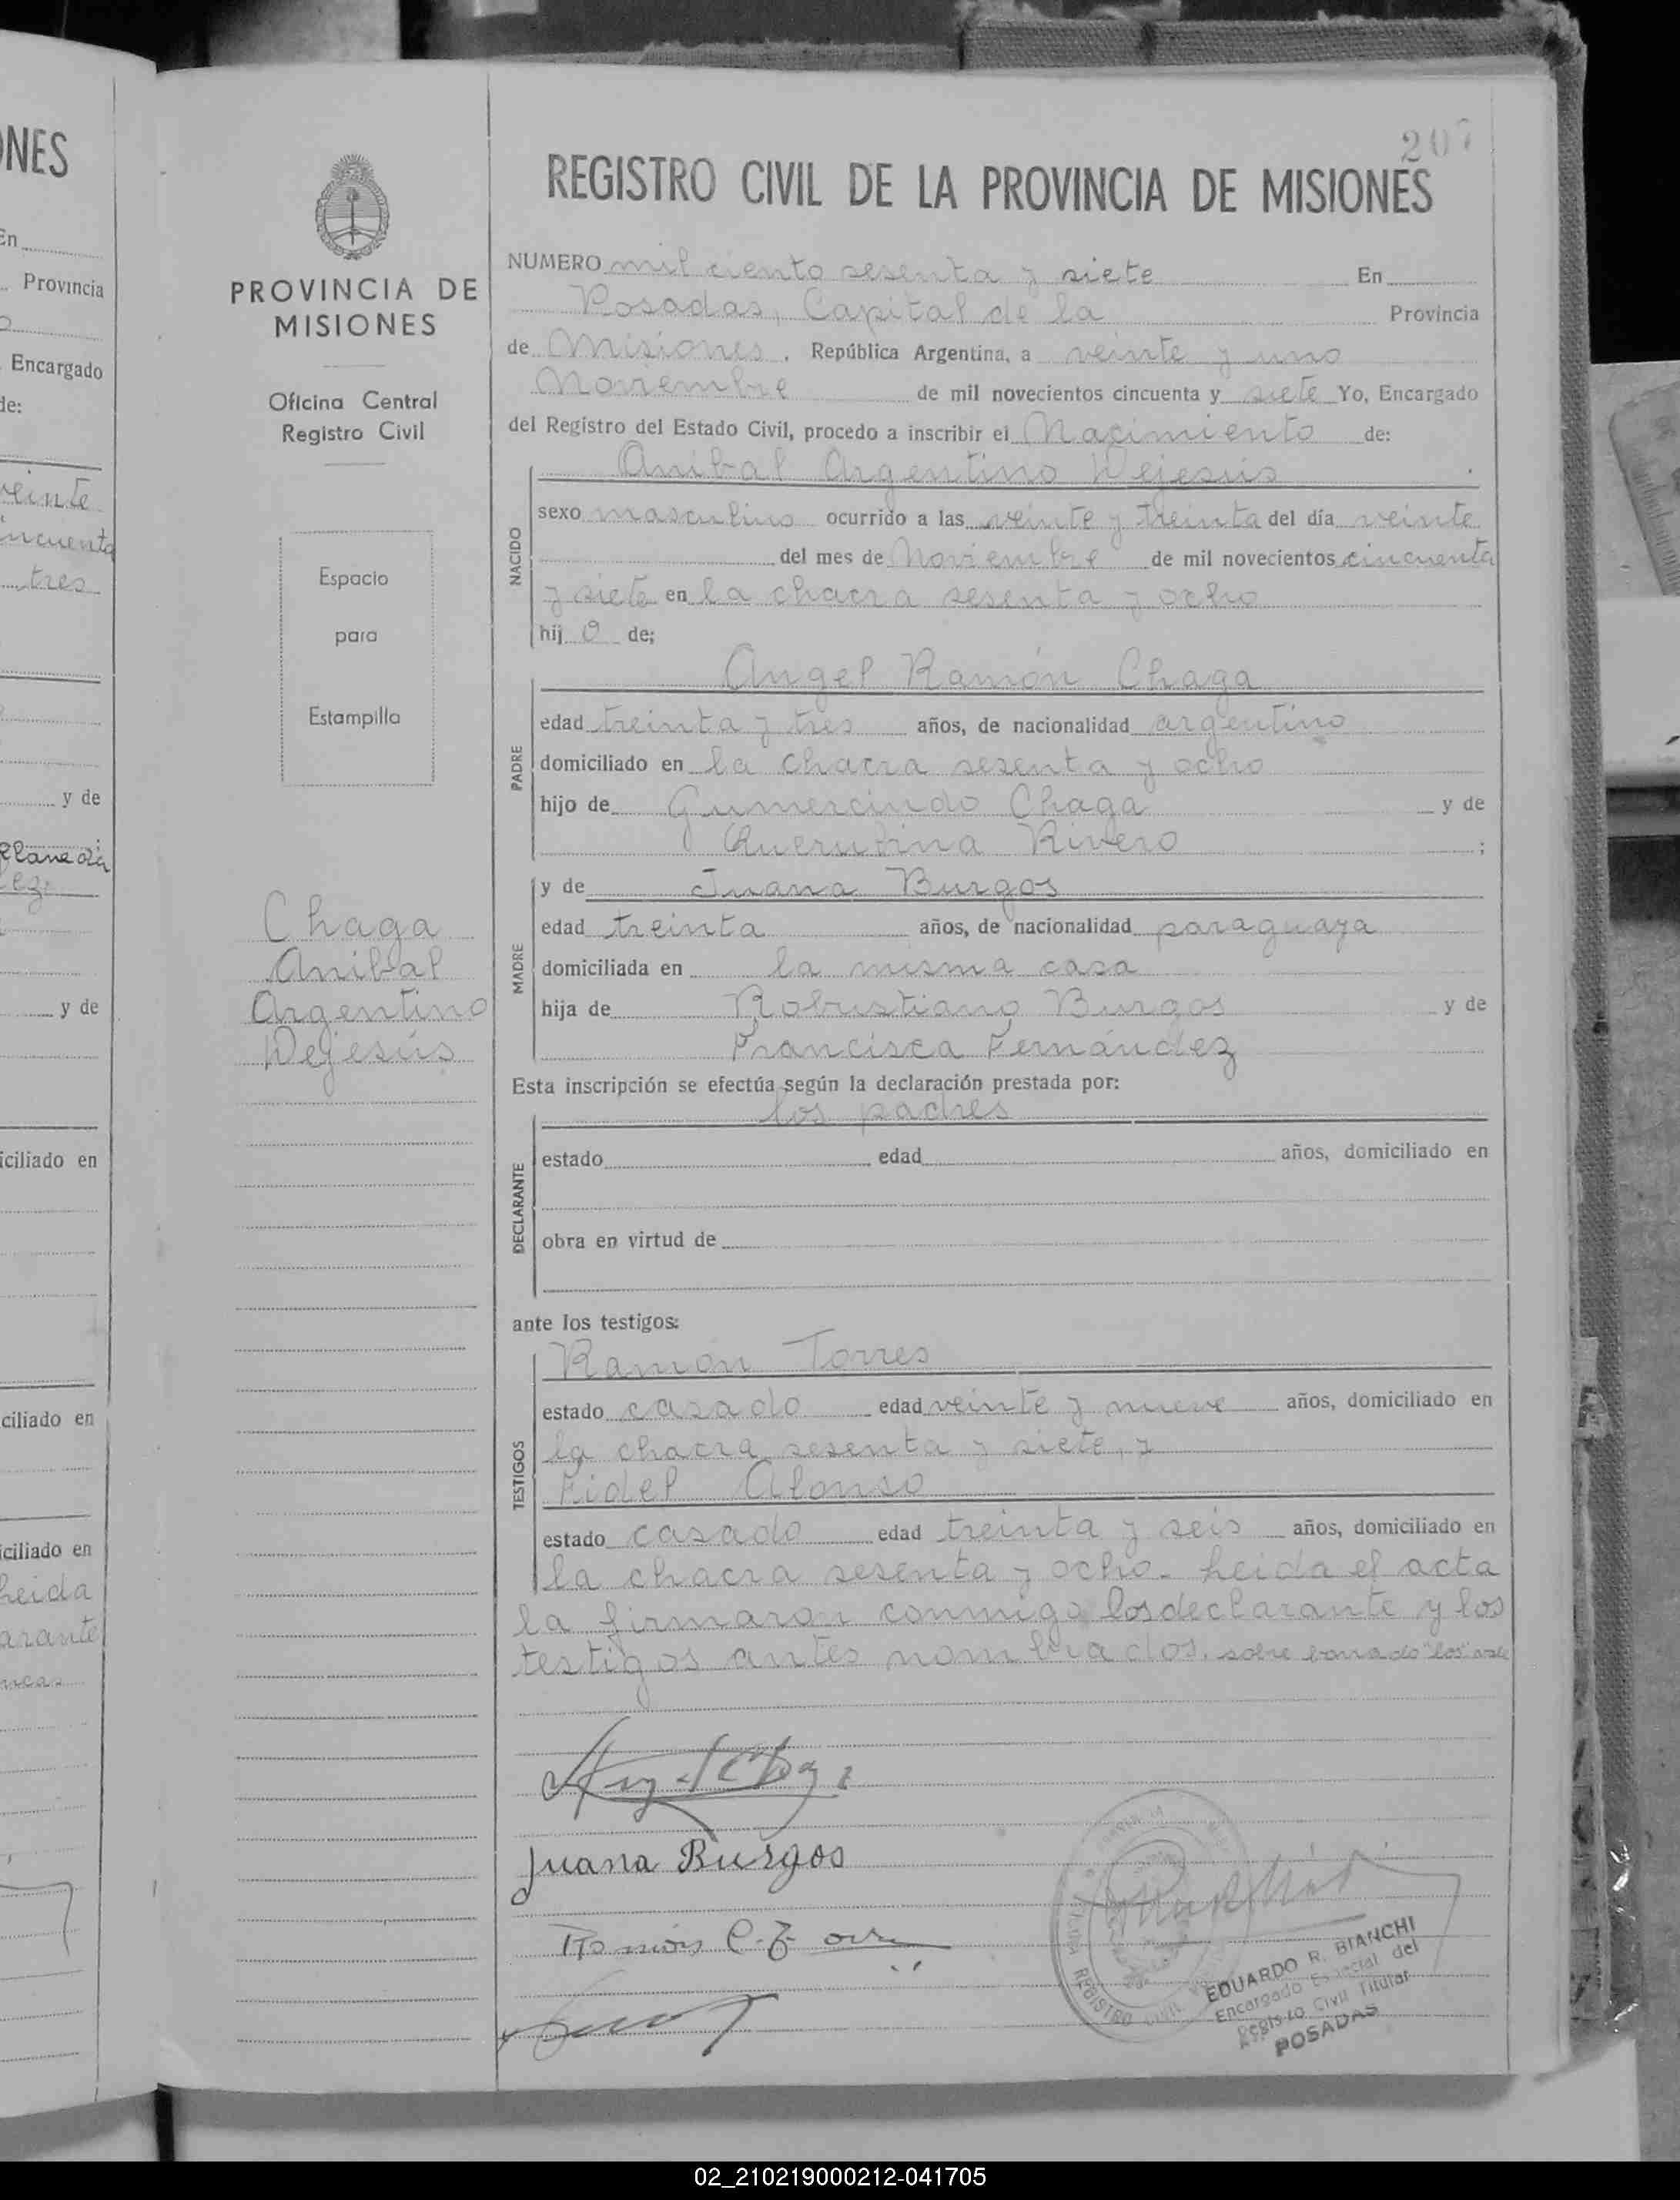 ONES
En
Provincia
o
Encargado
de:
veinte
incuenta
tres
y de
ez
y de
iciliado en
ciliado en
iciliado en
Leida
arante
PROVINCIA DE
MISIONES
Oficina Central
Registro Civil
Espacio
para
Estampilla
Chaga
Anibal
Argentino
Dejesús
207
REGISTRO CIVIL DE LA PROVINCIA DE MISIONES
NUMERO mil ciento sesenta y siete En
Posadas, Capital de la Provincia
de Misiones, República Argentina, a veinte y uno
Noviembre de mil novecientos cincuenta y siete Yo, Encargado
del Registro del Estado Civil, procedo a inscribir el Nacimiento de:
Anibal Argentino Dejesús
NACIDO
sexo masculino ocurrido a las veinte y treinta del día veinte
del mes de Noviembre de mil novecientos cincuenta
y siete en la chacra sesenta y ocho
hij o de;
Angel Ramón Chaga
PADRE
edad treinta y tres años, de nacionalidad argentino
domiciliado en la chacra sesenta y ocho
hijo de Gumercindo Chaga y de
Querubina Rivero ;
y de Juana Burgos
MADRE
edad treinta años, de nacionalidad paraguaya
domiciliada en la misma casa
hija de Robustiano Burgos y de
Francisca Fernández
Esta inscripción se efectúa según la declaración prestada por:
los padres
DECLARANTE
estado edad años, domiciliado en
obra en virtud de
ante los testigos:
Ramón Torres
TESTIGOS
estado casado edad veinte y nueve años, domiciliado en
la chacra sesenta y siete, y
Fidel Alonso
estado casado edad treinta y seis años, domiciliado en
la chacra sesenta y ocho. Leida el acta
la firmaron conmigo los declarante y los
testigos antes nombrados. sobre borrado "los" vale
Juana Burgos
Ramón
REGISTRO CIVIL
EDUARDO R. BIANCHI
Encargado Especial del
Registro Civil Titular
POSADAS
02_210219000212-041705